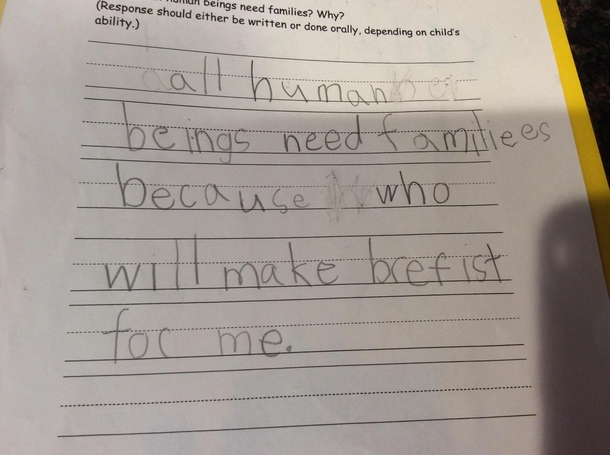 human beings need families? Why?
(Response should either be written or done orally, depending on child's
ability.)
all human
beings need familiees
because who
will make brefist
for me.